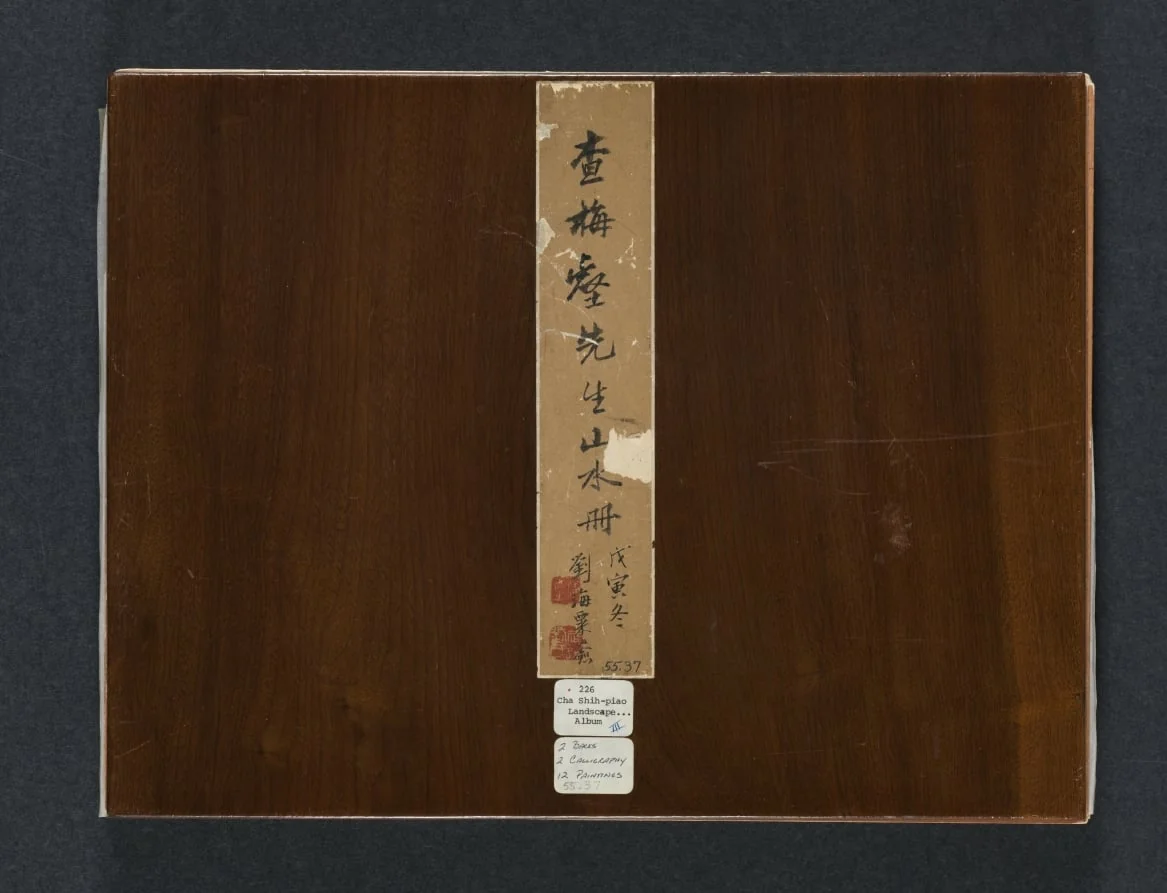 查梅壑先生山水冊
戊寅冬
劉海粟
55.37
226
Cha Shih-piao
Landscape...
Album
III
2 Backs
2 Calligraphy
12 Paintings
55.37